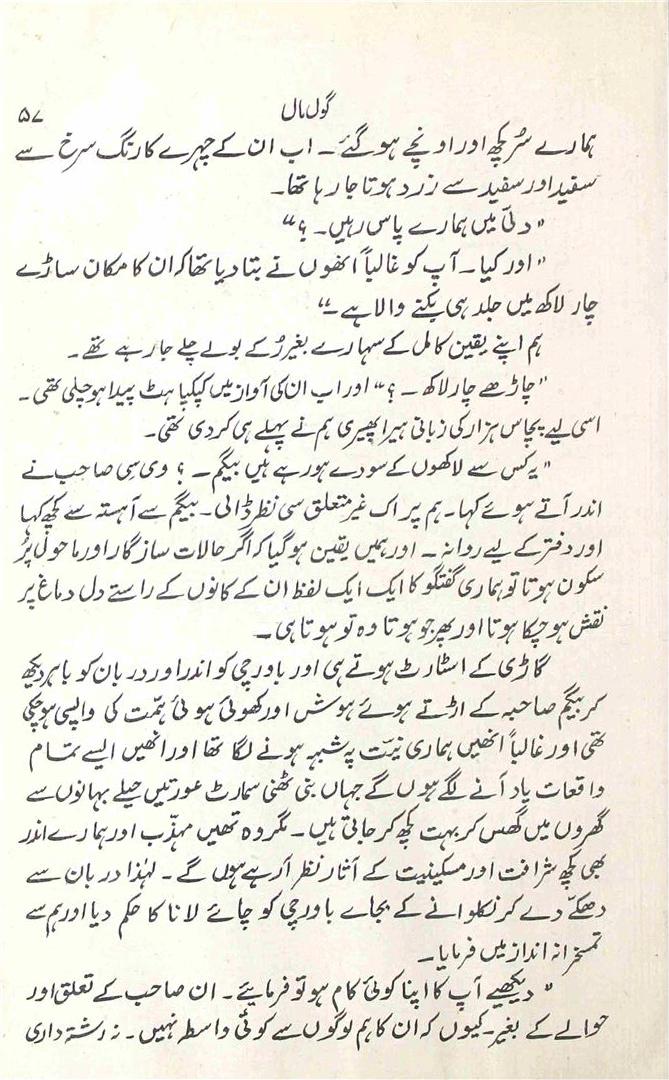 گول مال ۵۷
ہمارے سُر کچھ اور اونچے ہو گئے۔ اب ان کے چہرے کا رنگ سرخ سے
سفید اور سفید سے زرد ہوتا جا رہا تھا۔
” دلّی میں ہمارے پاس رہیں۔ ؟“
” اور کیا۔ آپ کو غالباً انھوں نے بتا دیا تھا کہ ان کا مکان ساڑے
چار لاکھ میں جلد ہی بکنے والا ہے۔“
ہم اپنے یقین کامل کے سہارے بغیر رُکے بولے چلے جا رہے تھے۔
” چاڑھے چار لاکھ۔ ؟“ اور اب ان کی آواز میں کپکپاہٹ پیدا ہو چلی تھی۔
اسی لیے پچاس ہزار کی زبانی ہیرا پھیری ہم نے پہلے ہی کر دی تھی۔
” یہ کس سے لاکھوں کے سودے ہو رہے ہیں بیگم۔ ؟ وی سی صاحب نے
اندر آتے ہوئے کہا۔ ہم پر اک غیر متعلق سی نظر ڈالی۔ بیگم سے آہستہ سے کچھ کہا
اور دفتر کے لیے روانہ۔ اور ہمیں یقین ہو گیا کہ اگر حالات سازگار اور ماحول پُر
سکون ہوتا تو ہماری گفتگو کا ایک ایک لفظ ان کے کانوں کے راستے دل دماغ پر
نقش ہو چکا ہوتا اور پھر جو ہوتا وہ تو ہوتا ہی۔
گاڑی کے اسٹارٹ ہوتے ہی اور باورچی کو اندر اور دربان کو باہر دیکھ
کر بیگم صاحبہ کے اڑتے ہوئے ہوش اور کھوئی ہوئی ہمّت کی واپسی ہو چکی
تھی اور غالباً انھیں ہماری نیّت پہ شبہہ ہونے لگا تھا اور انھیں ایسے تمام
واقعات یاد آنے لگے ہوں گے جہاں بنی ٹھنی سمارٹ عورتیں حیلے بہانوں سے
گھروں میں گھس کر بہت کچھ کر جاتی ہیں۔ مگر وہ تھیں مہذّب اور ہمارے اندر
بھی کچھ شرافت اور مسکینیت کے آثار نظر آ رہے ہوں گے۔ لہٰذا دربان سے
دھکّے دے کر نکلوانے کے بجاے باورچی کو چائے لانا کا حکم دیا اور ہم سے
تمسخرانہ انداز میں فرمایا۔
” دیکھیے آپ کا اپنا کوئی کام ہو تو فرمایئے۔ ان صاحب کے تعلق اور
حوالے کے بغیر۔ کیوں کہ ان کا ہم لوگوں سے کوئی واسطہ نہیں۔ نہ رشتہ داری